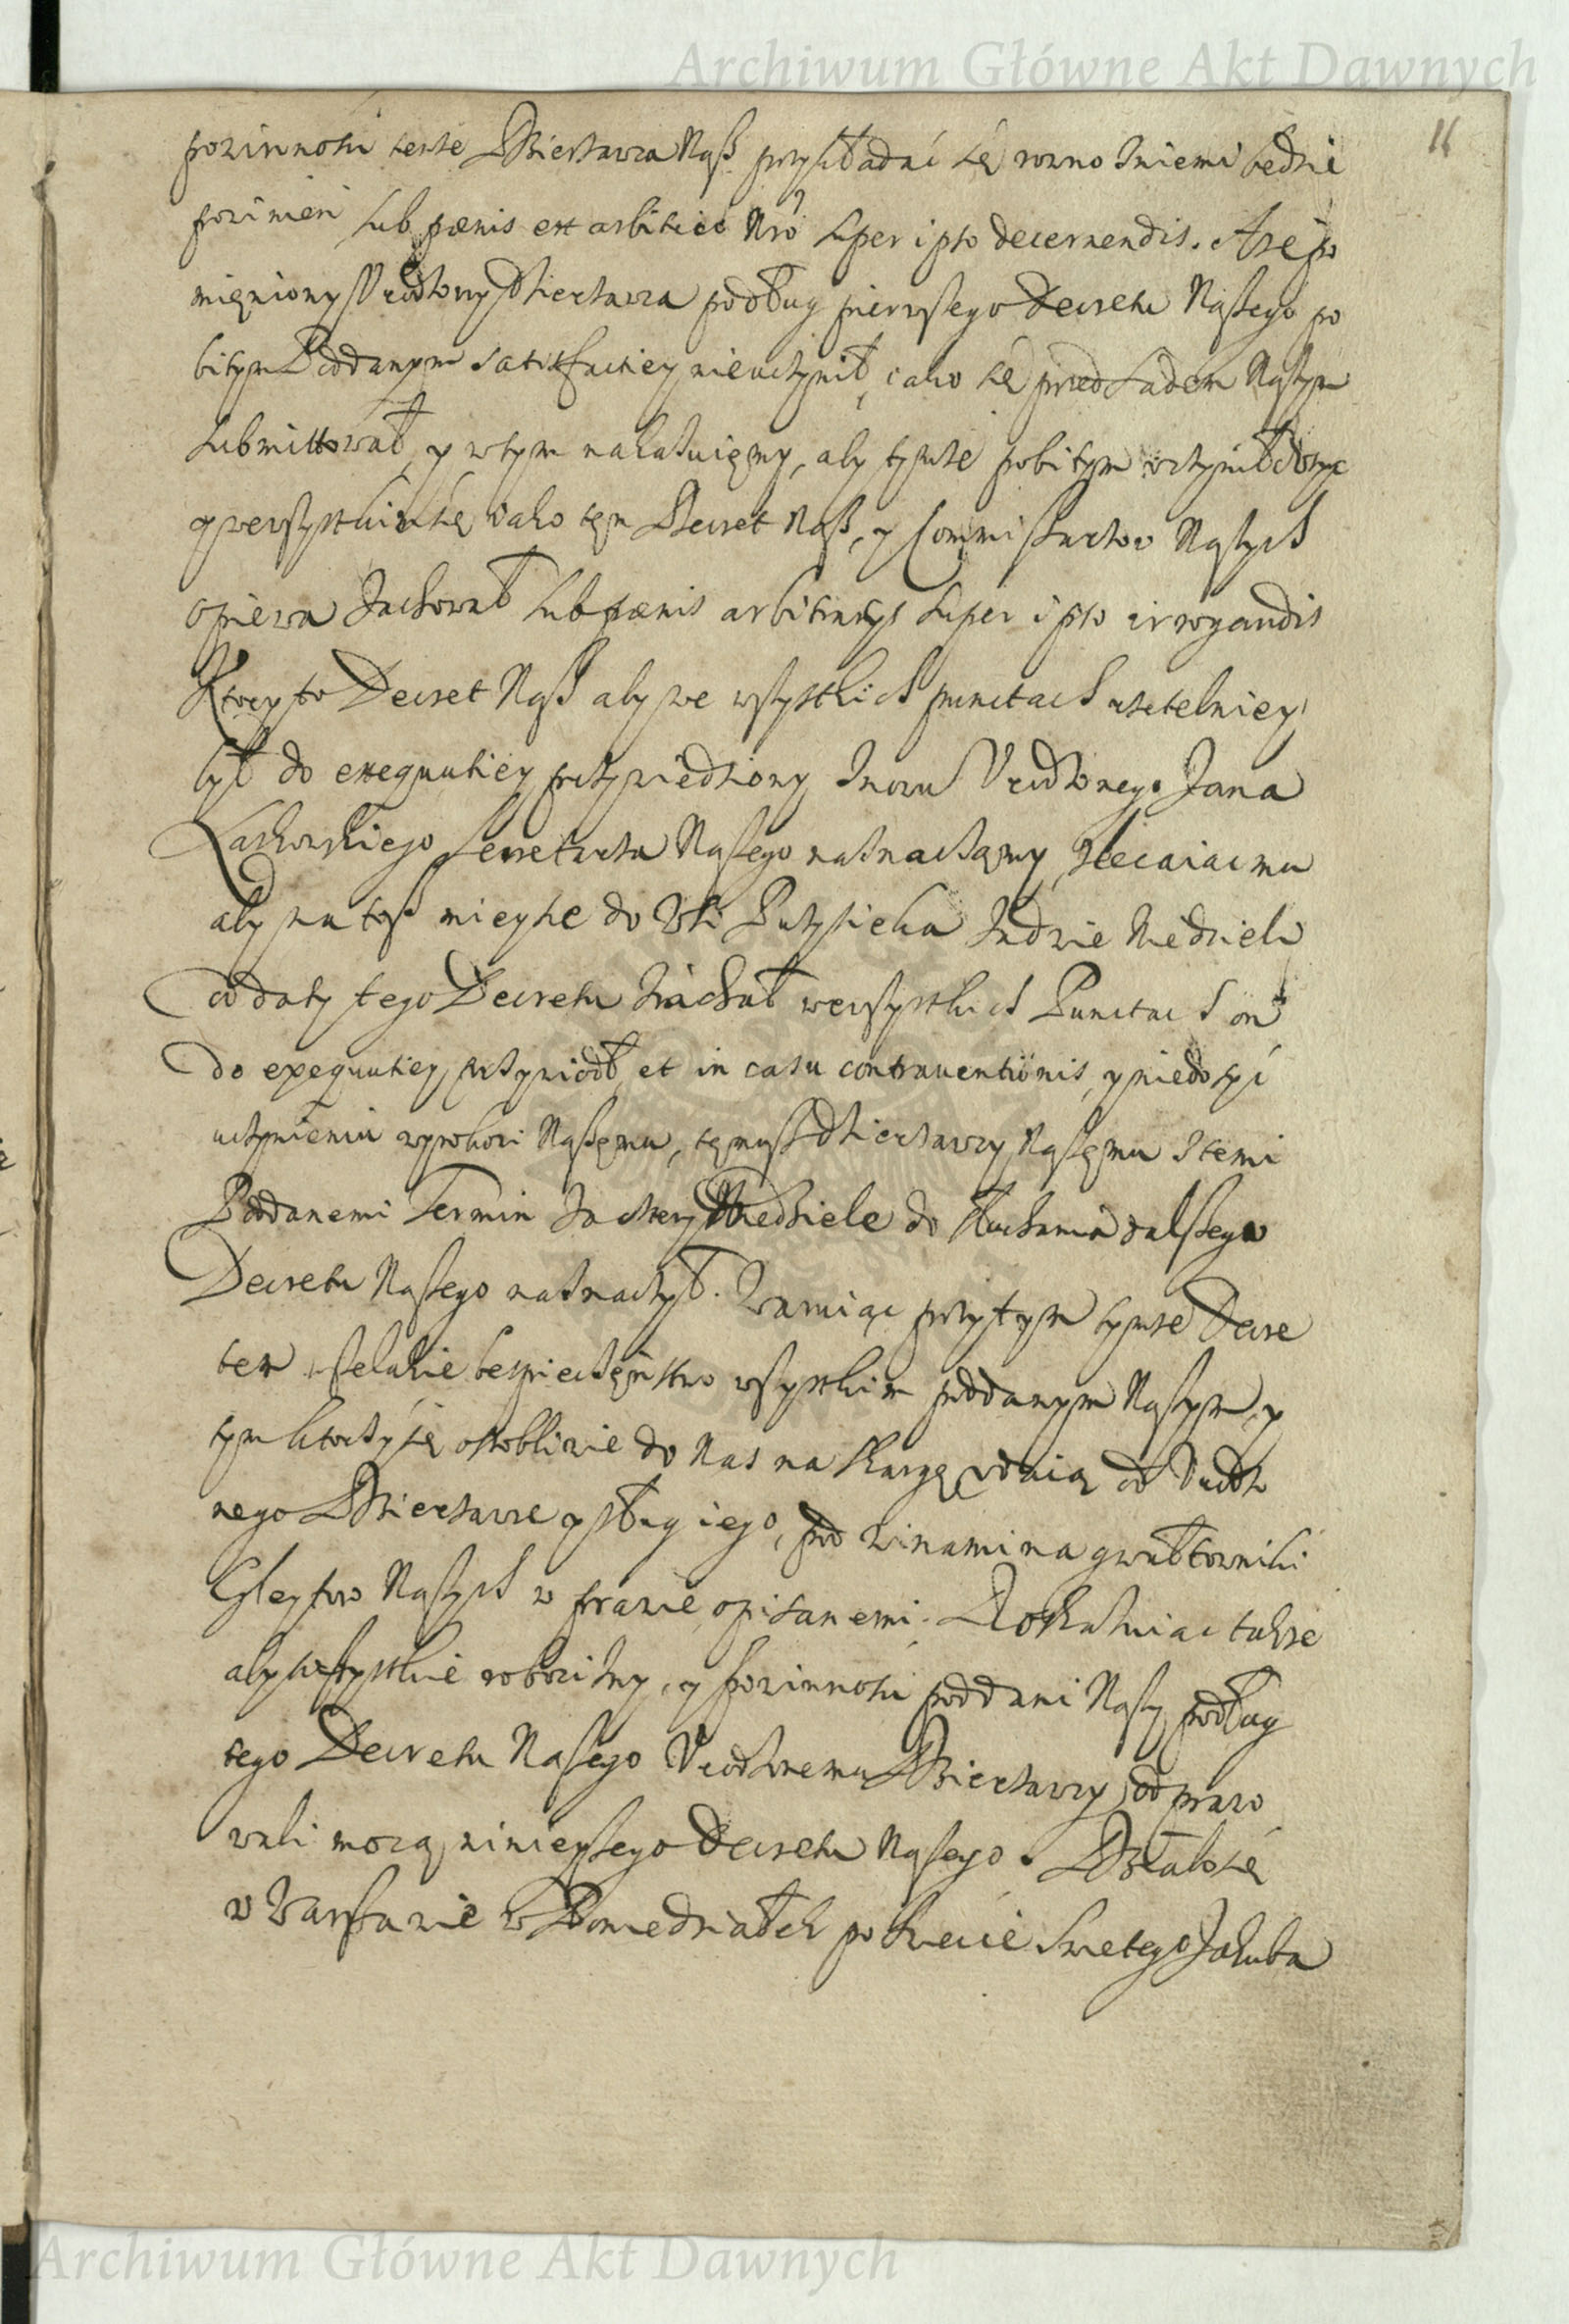 Archiwum Główne Akt Dawnych
11
powinnosci tenże Dzierżawca Nasz przykładać się rowno z niemi będzie
powinien sub pænis ex arbitrio Nro super ipso decernendis. A że po
mieniony Vrodzony Dzierżawca podług pierwszego Decretu Naszego po
bitym Poddanym satisfactiey nieuczynił, iako się przed Sądem Naszym
submittował, y wtym nakazuiemy, aby tymże pobitym uczynił dosyc
y wewszystkim się iako ten Decret Nasz, y Commissarzow Naszych
opiewa zachował sub pænis arbitrarys super ipso irrogandis
Ktory to Decret Nasz aby we wszystkich punctach rzetelniey
był do exequutiey przywiedziony znowu Vrodzonego Jana
Laskowskiego Secretarza Naszego naznaczamy, zlecaiac mu
aby na tosz mieysce do Wsi Przysieka za dwie Niedzieli
od daty tego Decretu ziachał wewszystkich Punctach on
do exequutiey przywiodł, et in casu contrauentionis, y niedosyć
uczynieniu wyrokowi Naszemu, temusz Dzierżawcy Naszemu stemi
Poddanemi termin za cztery Niedziele do słuchania dalszego
Decretu Naszego naznaczył. Waruiąc przytym tymże Decre
tem wszelakie bespieczenstwo wszystkim poddanym Naszym, y
tym ktorzy się osobliwie do Nas na skargę udaią od Vrodzo
nego Dzierżawce y sług iego, pod winami na gwałtowniki
Gleytow Naszych w prawie opisanemi. Rozkazuiac także
aby wszystkie robocizny, y powinnosci poddani Naszy podług
tego Decretu Naszego Vrodzonemu Dzierżawcy odprawo
wali mocą ninieyszego Decretu Naszego. Działo się
w Warszawie w Poniedziałek po Swiecie Swietego Jakuba
Archiwum Główne Akt Dawnych